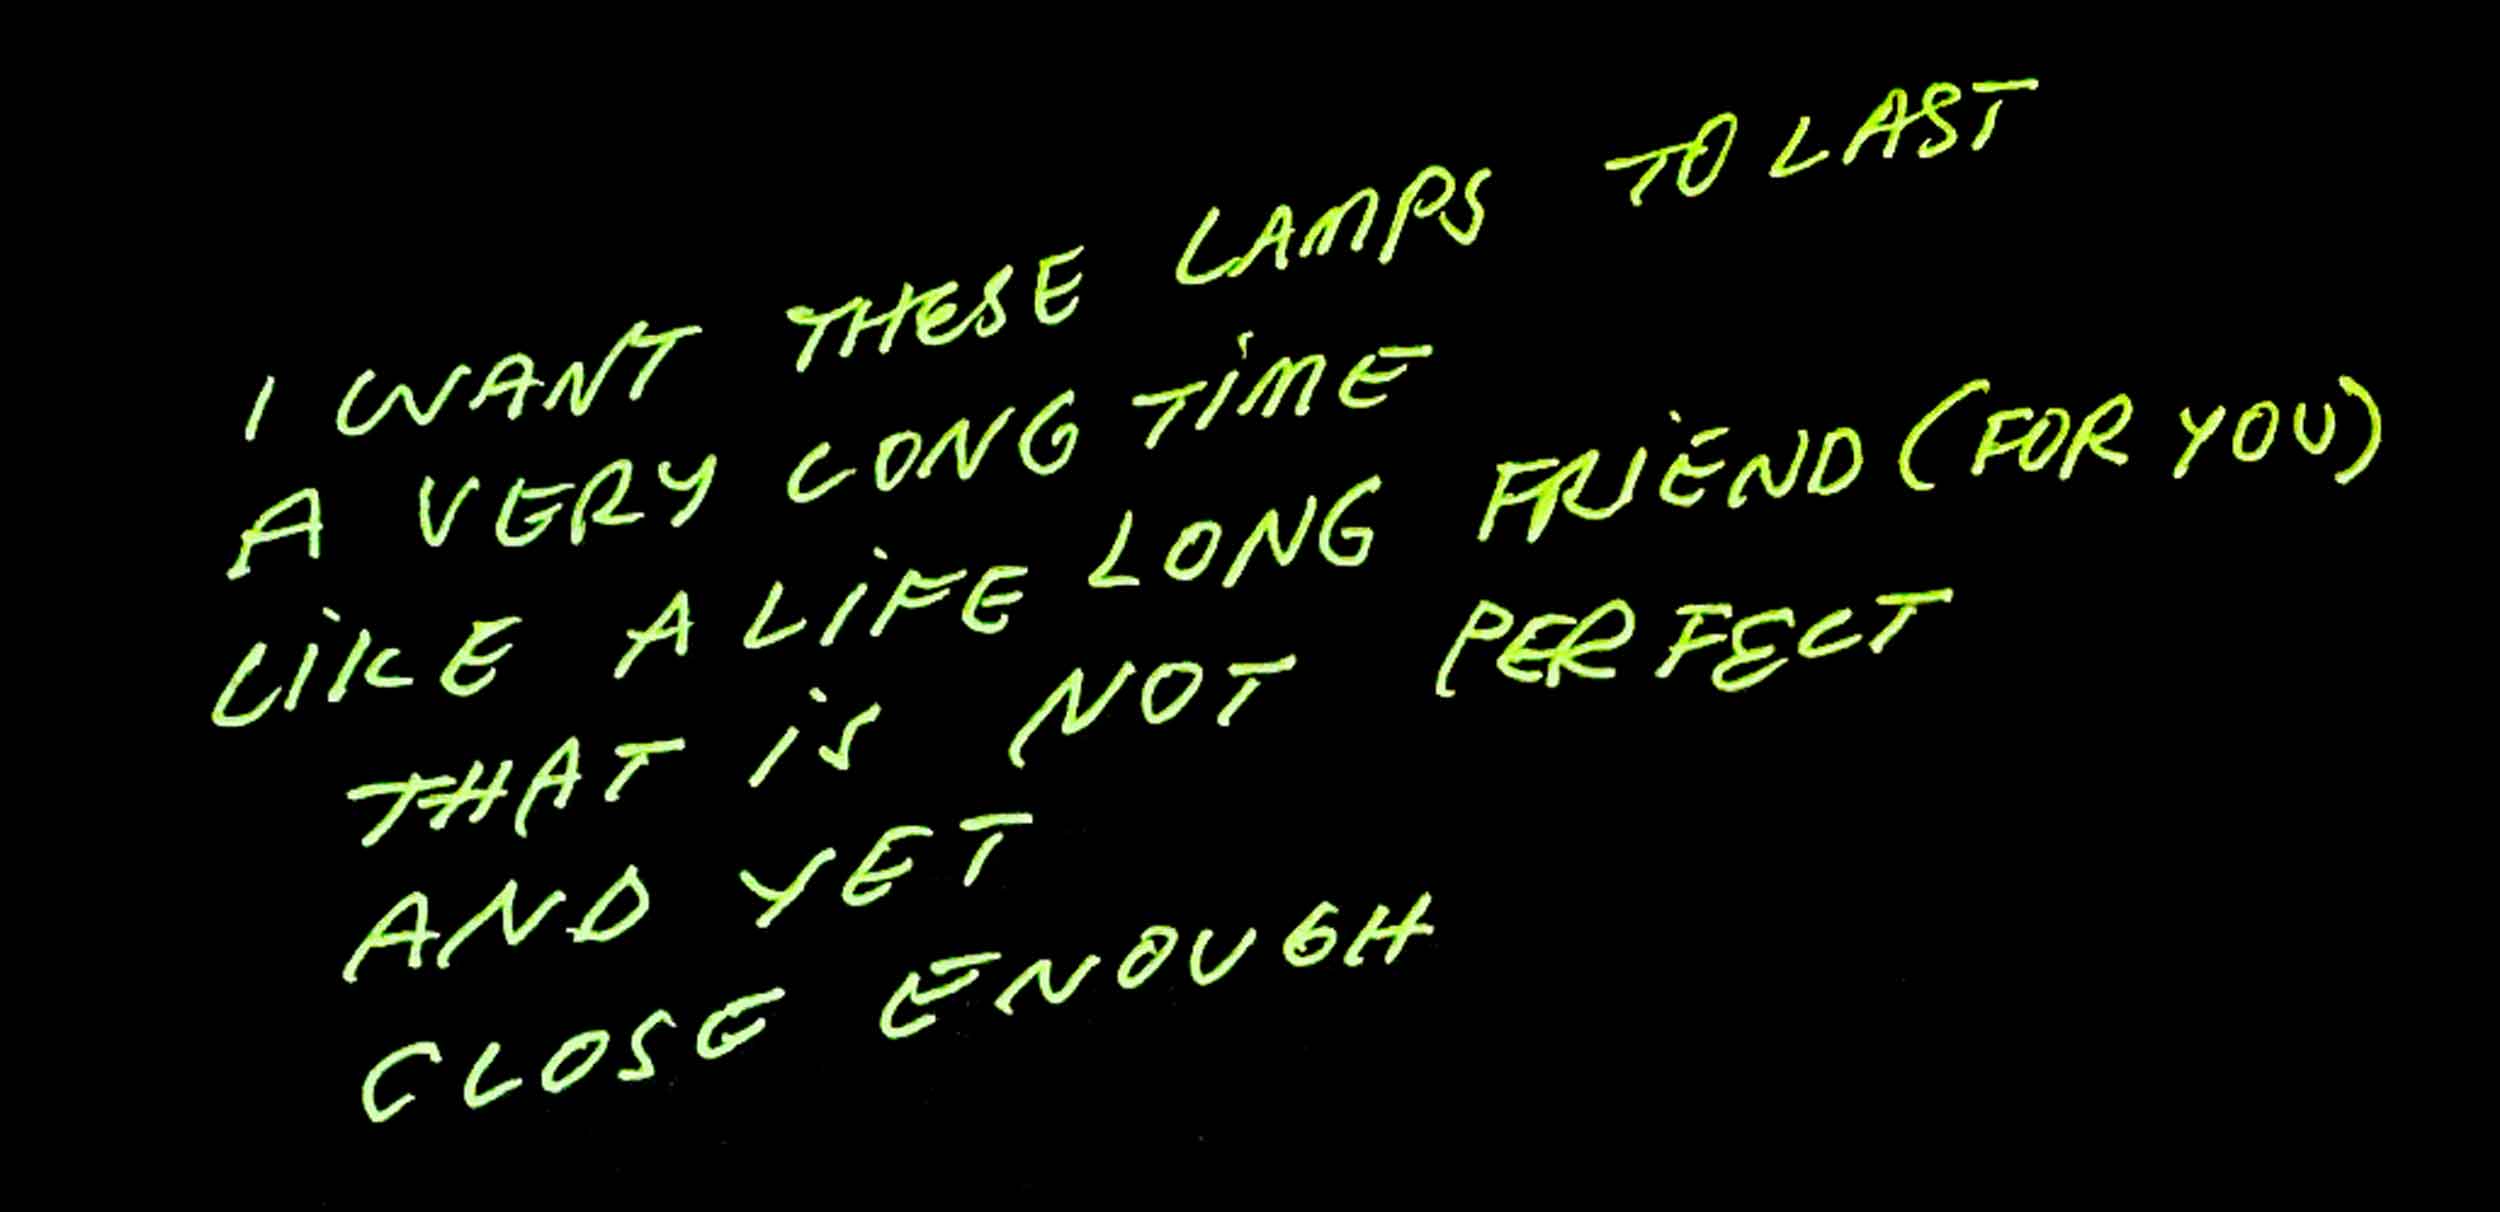 I WANT THESE LAMPS TO LAST
A VERY LONG TIME
LIKE A LIFE LONG FRIEND (FOR YOU)
THAT IS NOT PERFECT
AND YET
CLOSE ENOUGH